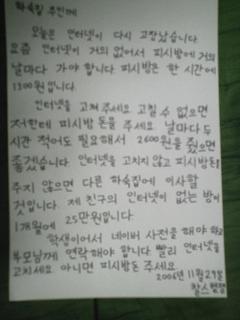 하숙집 주인께
오늘은 인터넷이 다시 고장났습니다
요즘 인터넷이 거의 없어서 피시방에 거의
날마다 가야 합니다 피시방은 한 시간에
1300원입니다.
인터넷을 고쳐 주세요 고칠 수 없으면
저한테 피시방 돈을 주세요 날마다 두
시간 적어도 필요해서 2600원을 줬으면
좋겠습니다 인터넷을 고치지 않고 피시방돈을
주지 않으면 다른 하숙집에 이사할
것입니다. 제 친구의 인터넷이 없는 방이
1개월에 25만원입니다.
학생이어서 네이버 사전을 해야 하고
부모님께 연락해야 합니다 빨리 인터넷을
고치세요 아니면 피시방돈 주세요
2006년 11월 29일